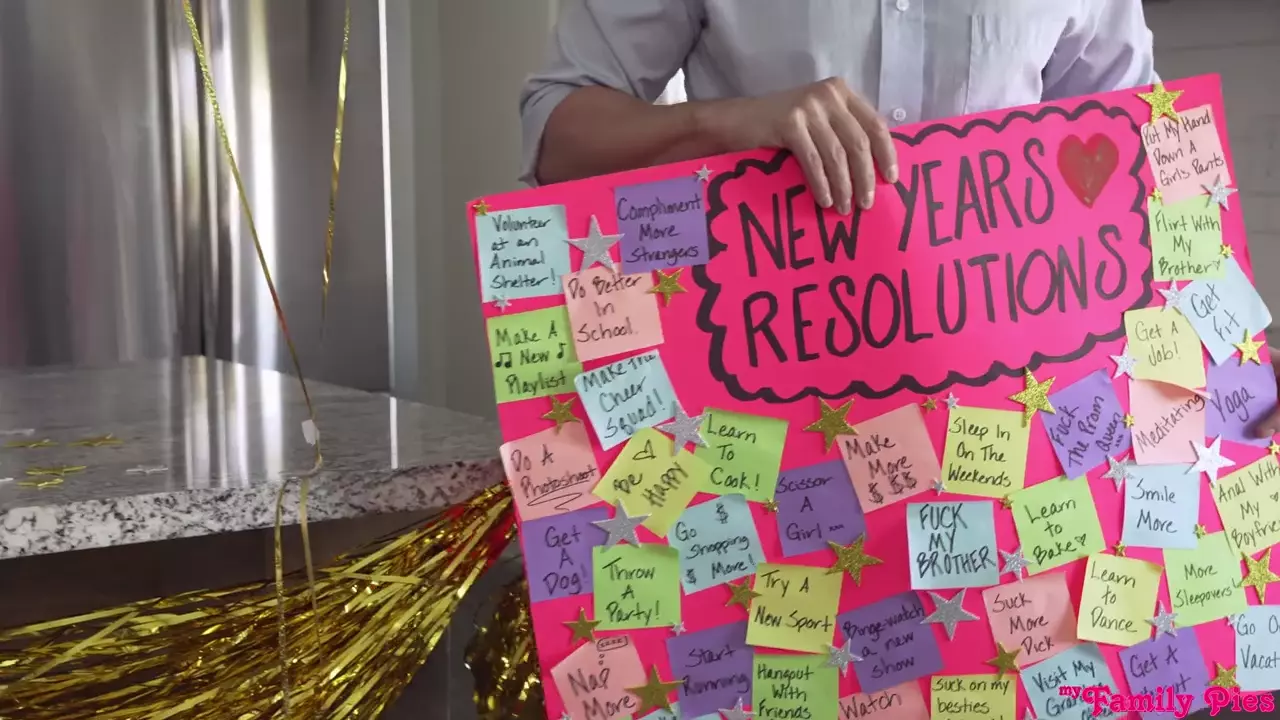 Volunteer
at an
Animal
Shelter!
Compliment
More
Strangers
NEW YEARS
RESOLUTIONS
Put My Hand
Down A
Girls Pants
Flirt With
My
Brother
Do Better
In
School.
Make A
New
Playlist
Make The
Cheer
Squad!
Get
Fit
Get A
Job!
Yoga
Meditating
Fuck
The Prom
Queen
Do A
Photoshoot
Be
HAPPY
Learn
To
Cook!
Make
More
$ $ $
Sleep In
On The
Weekends
Scissor
A
Girl...
Smile
More
Anal With
My
Boyfriend
Get
A
Dog!
Go $
Shopping
$ More!
FUCK
MY
BROTHER
Learn
to
Bake
Throw
A
Party!
Try A
New Sport
Learn
to
Dance
More
Sleepovers!
Binge-watch
a new
show
Suck
More
Dick
Go On
Nap
More
Start
Running
Hangout
With
Friends
Watch
Suck on my
besties
Visit My
Get A
my Family Pies